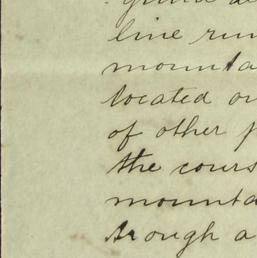 line run
mounta
located on
of other p
the cours
mounta
trough a